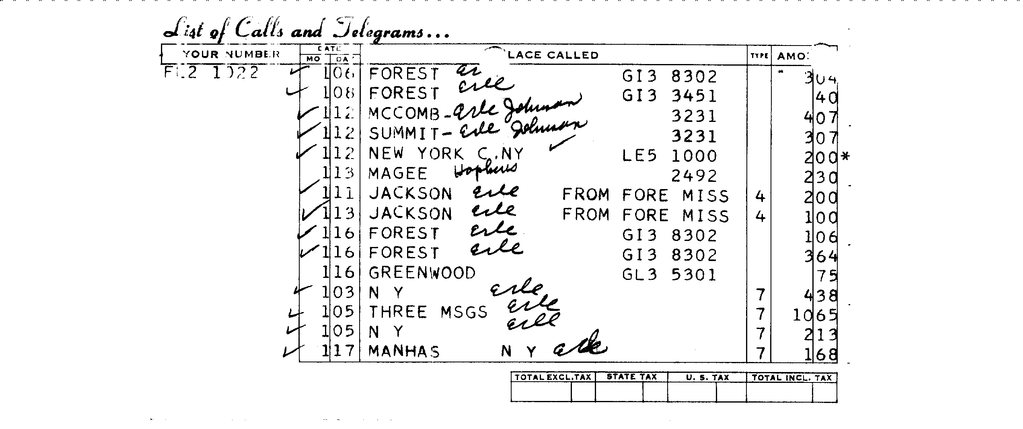 List of Calls and Telegrams...
YOUR NUMBER DATE MO DA LACE CALLED TYPE AMO
1022 106 FOREST GI3 8302 304
108 FOREST Erle GI3 3451 40
112 MCCOMB - Erle Johnson 3231 407
112 SUMMIT - Erle Johnson 3231 307
112 NEW YORK C.NY LE5 1000 200*
113 MAGEE Hopkins 2492 230
111 JACKSON Erle FROM FORE MISS 4 200
113 JACKSON Erle FROM FORE MISS 4 100
116 FOREST Erle GI3 8302 106
116 FOREST Erle GI3 8302 364
116 GREENWOOD GL3 5301 75
103 N Y Erle 7 438
105 THREE MSGS Erle 7 1065
105 N Y Erle 7 213
117 MANHAS N Y Erle 7 168
TOTAL EXCL.TAX STATE TAX U. S. TAX TOTAL INCL. TAX